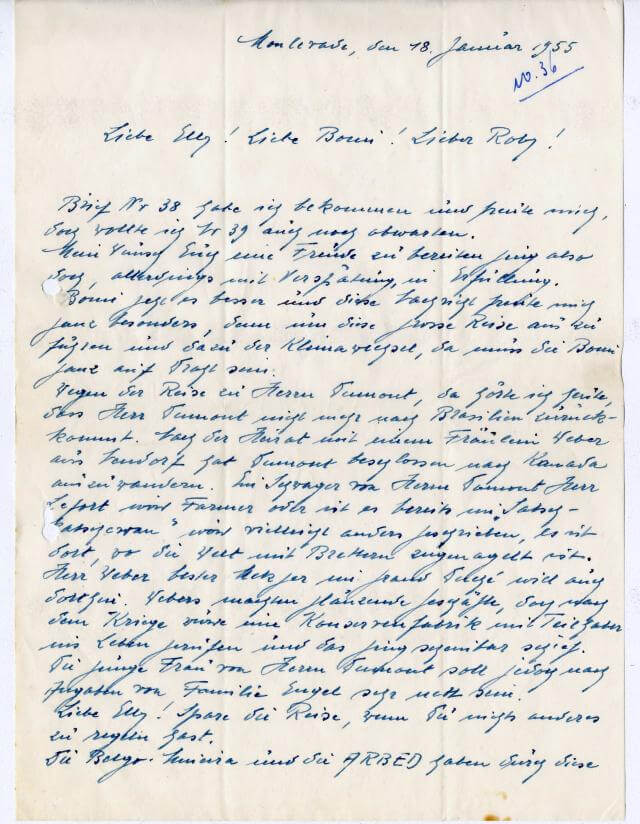 Monlevade, den 18. Januar 1955
No. 36
Liebe Elly! Liebe Bomi! Lieber Roby!
Brief Nr 38 habe ich bekommen und freute mich,
doch wollte ich Nr 39 auch noch abwarten.
Mein Wunsch Euch eine Freude zu bereiten ging also
doch, allerdings mit Verspätung, in Erfüllung.
Bomi geht es besser und diese Nachricht freute mich
ganz besonders, denn um diese grosse Reise aus zu
führen und dazu der Klimawechsel, da muss die Bomi
ganz auf Draht sein.
Wegen der Reise zu Herrn Dumont, da hörte ich heute,
dass Herr Dumont nicht mehr nach Brasilien zurück-
kommt. Nach der Heirat mit einem Fräulein Weber
aus hat Dumont beschlossen nach Kanada
auszuwandern. Ein Schwager von Herrn Dumont Herr
Lefort wird Farmer oder ist es bereits im "Satsch-
katschewan" wird vielleicht anders geschrieben, es ist
dort, wo die Welt mit Brettern zugenagelt ist.
Herr Weber bester Metzger im grand Duché will auch
dorthin. Webers machten glänzende Geschäfte, doch nach
dem Kriege wurde eine Konservenfabrik mit Teilhaber
ins Leben gerufen und das ging schief.
Die junge Frau von Herrn Dumont soll jedoch nach
Angaben von Familie Engel sehr nett sein.
Liebe Elly! Spare die Reise, wenn Du nichts anderes
zu regeln hast.
Die Belgo-Mineira und die ARBED haben durch diese